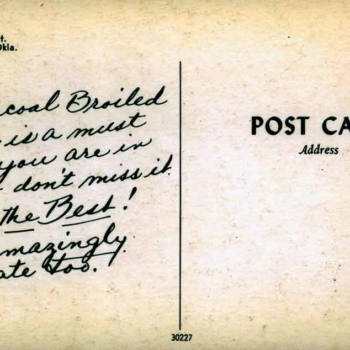 t.
Okla.
coal Broiled
is a must
you are in
don't miss it
the Best!
mazingly
ate too.
POST CA
Address
30227